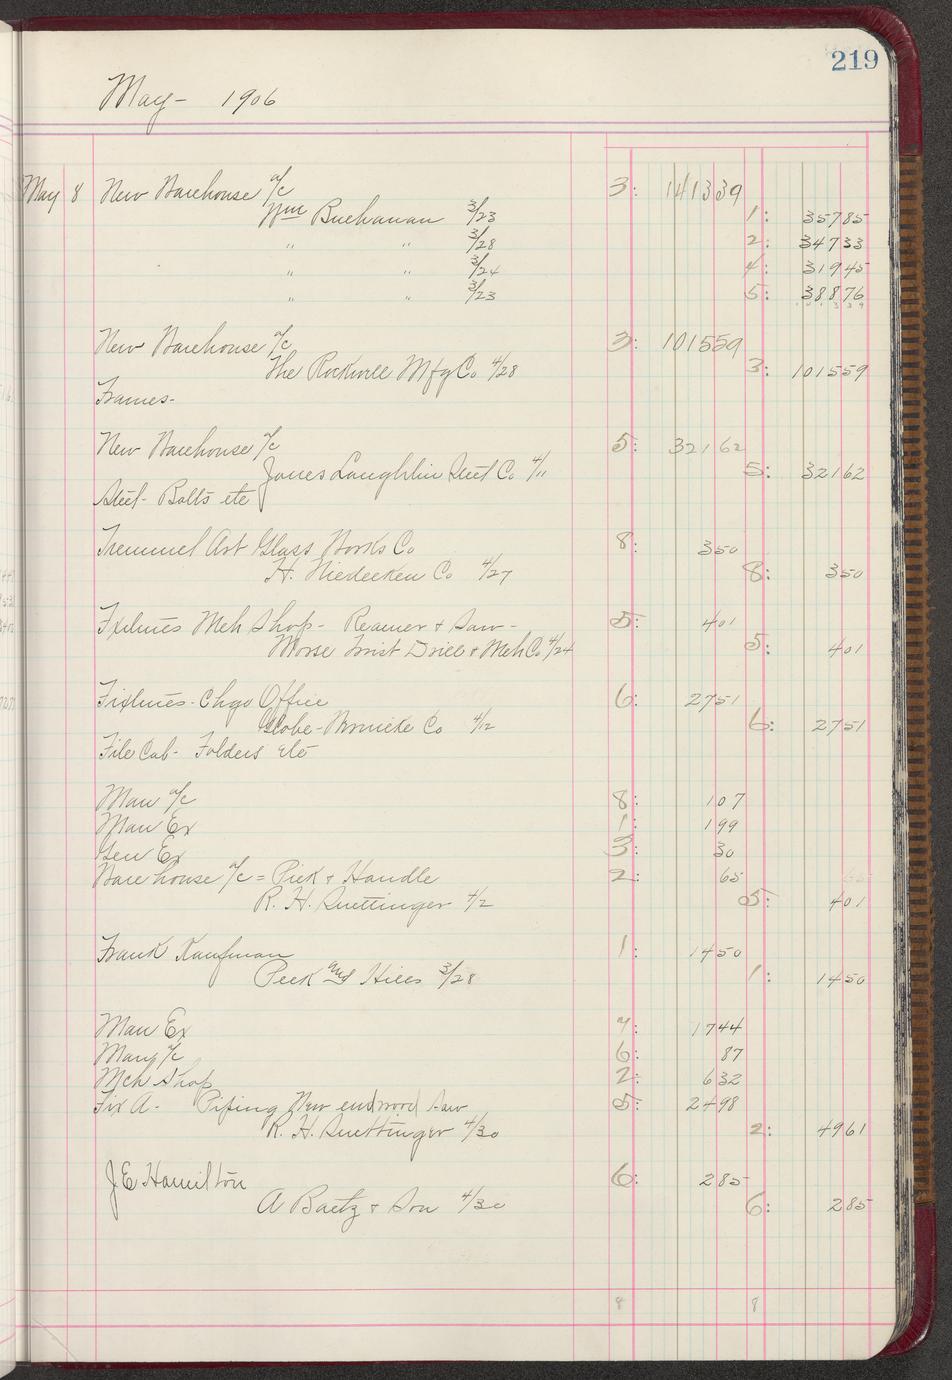 219
May - 1906
May 8 New Warehouse a/c 3: 141339
Wm Buchanan 3/23 1: 35785
" " 3/28 2: 34733
" " 3/24 4: 31945
" " 3/23 5: 38876
New Warehouse a/c 3: 101559
The Rockwell Mfg Co 4/28 3: 101559
Frames-
New Warehouse a/c 5: 32162
Jones Laughlin Steel Co 4/11 5: 32162
Steel- Bolts etc
Tremmel Art Glass Works Co 8: 350
H. Niedecken Co 4/27 8: 350
Fixtures Mch Shop- Reamer + Saw- 5: 401
Morse Twist Drill + Mch Co 4/24 5: 401
Fixtures- Chgo Office 6: 2751
Globe-Wernicke Co 4/12 6: 2751
File Cab- Folders etc
Man a/c 8: 107
Man Ex 1: 199
Gen Ex 3: 30
Warehouse a/c = Pick + Handle 2: 65
R. H. Ruettinger 4/2 5: 401
Frank Kaufman 1: 1450
Peck and Hills 3/28 1: 1450
Man Ex 7: 1744
Man a/c 6: 87
Mch Shop 2: 632
Fix A- Piping New endwood Saw 5: 2498
R. H. Ruettinger 4/30 2: 4961
J E Hamilton 6: 285
A Baetz + Son 4/30 6: 285
8 8